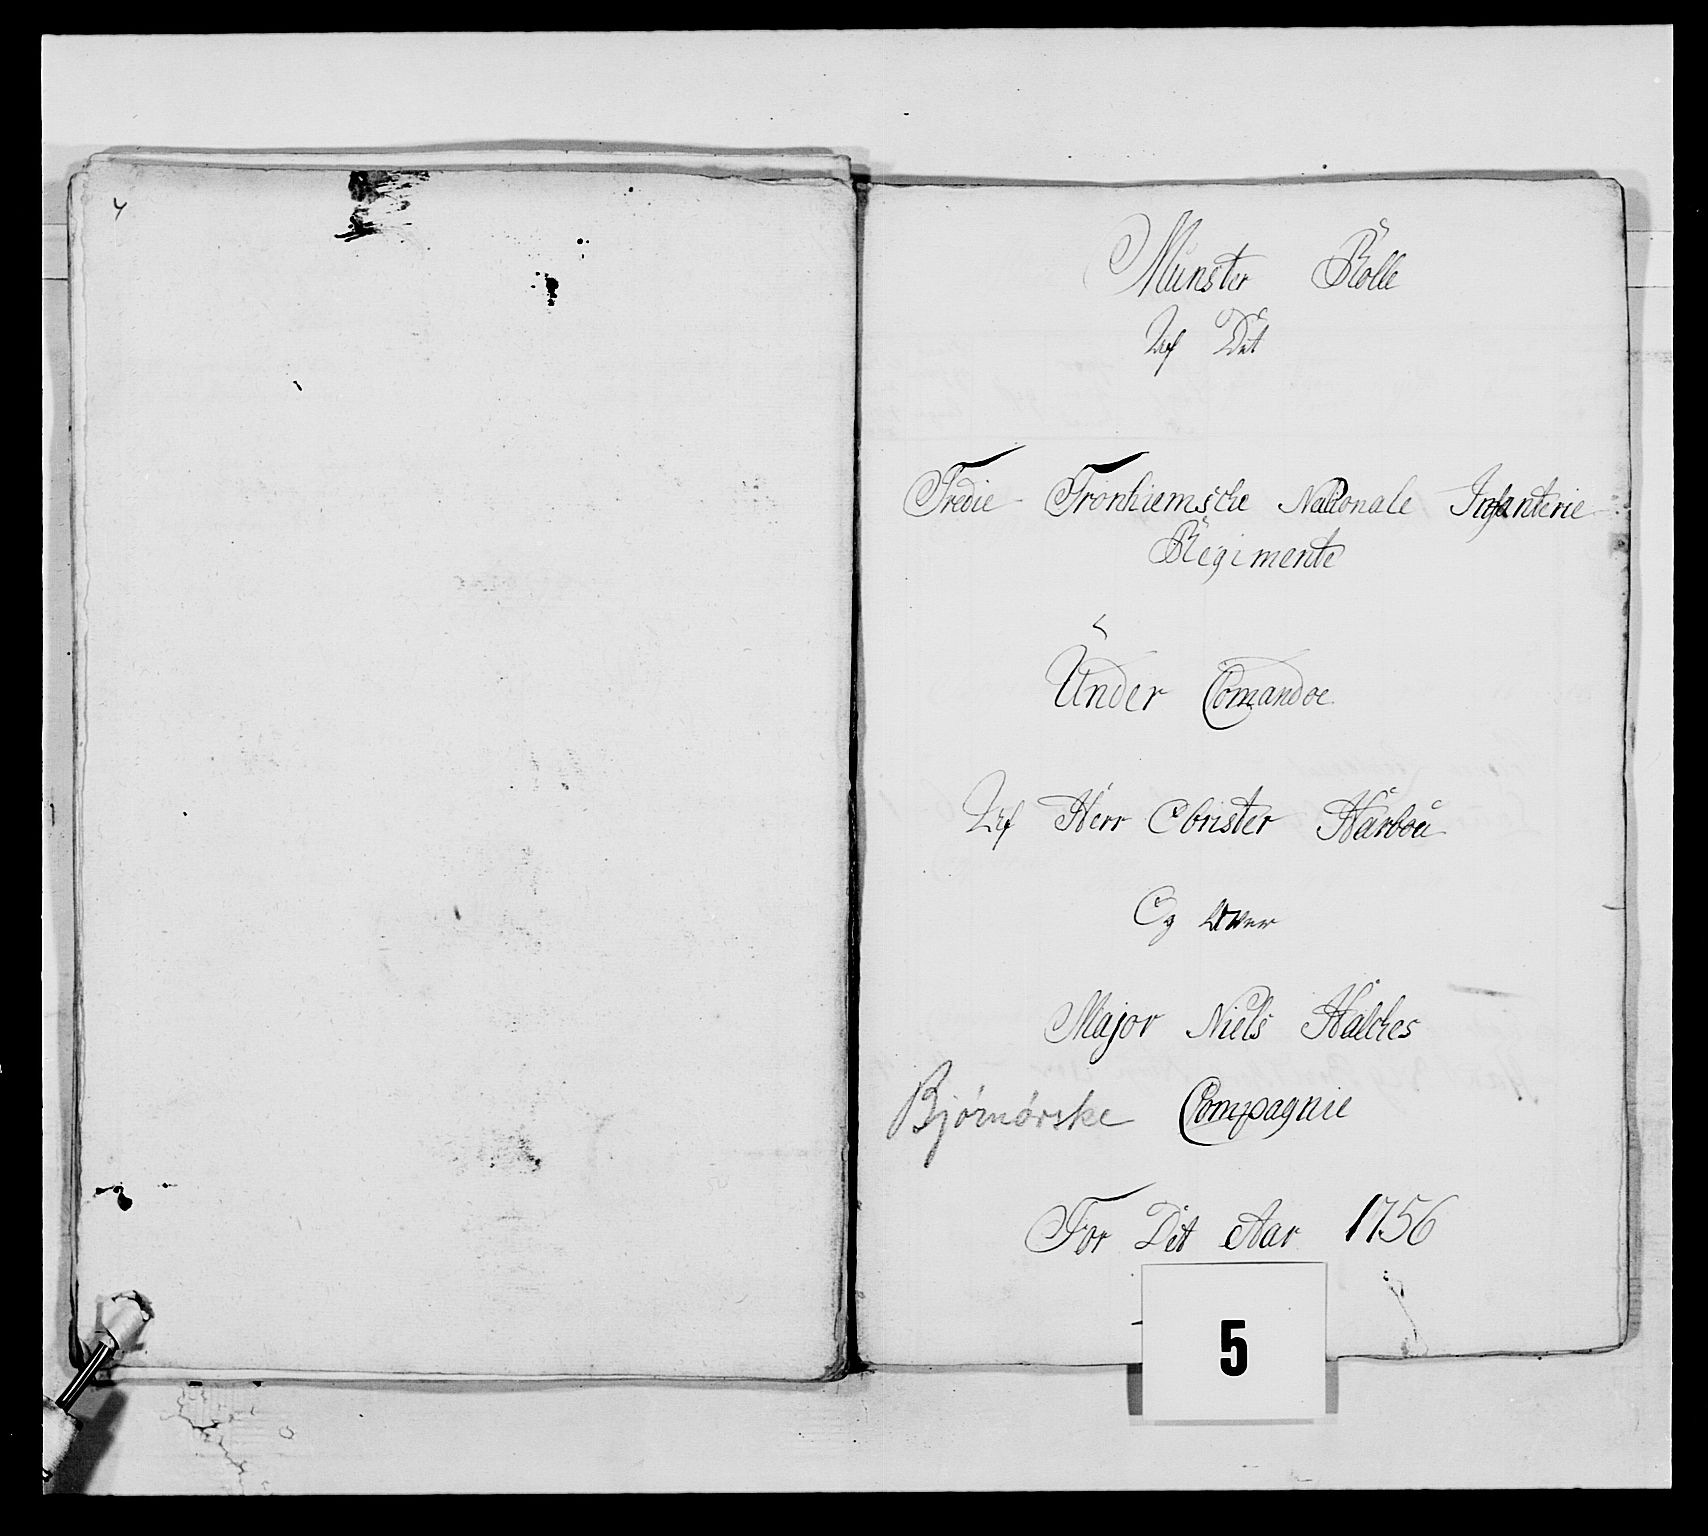 4
Munster Rolle
Af Det
Tredie Tronhiemsche Nationale Infanterie
Regimente
Under Comandoe
Af Herr Obrister Harbou
Og over
Major Niels Halches
Bjørnørske Compagnie
For Det Aar 1756
5